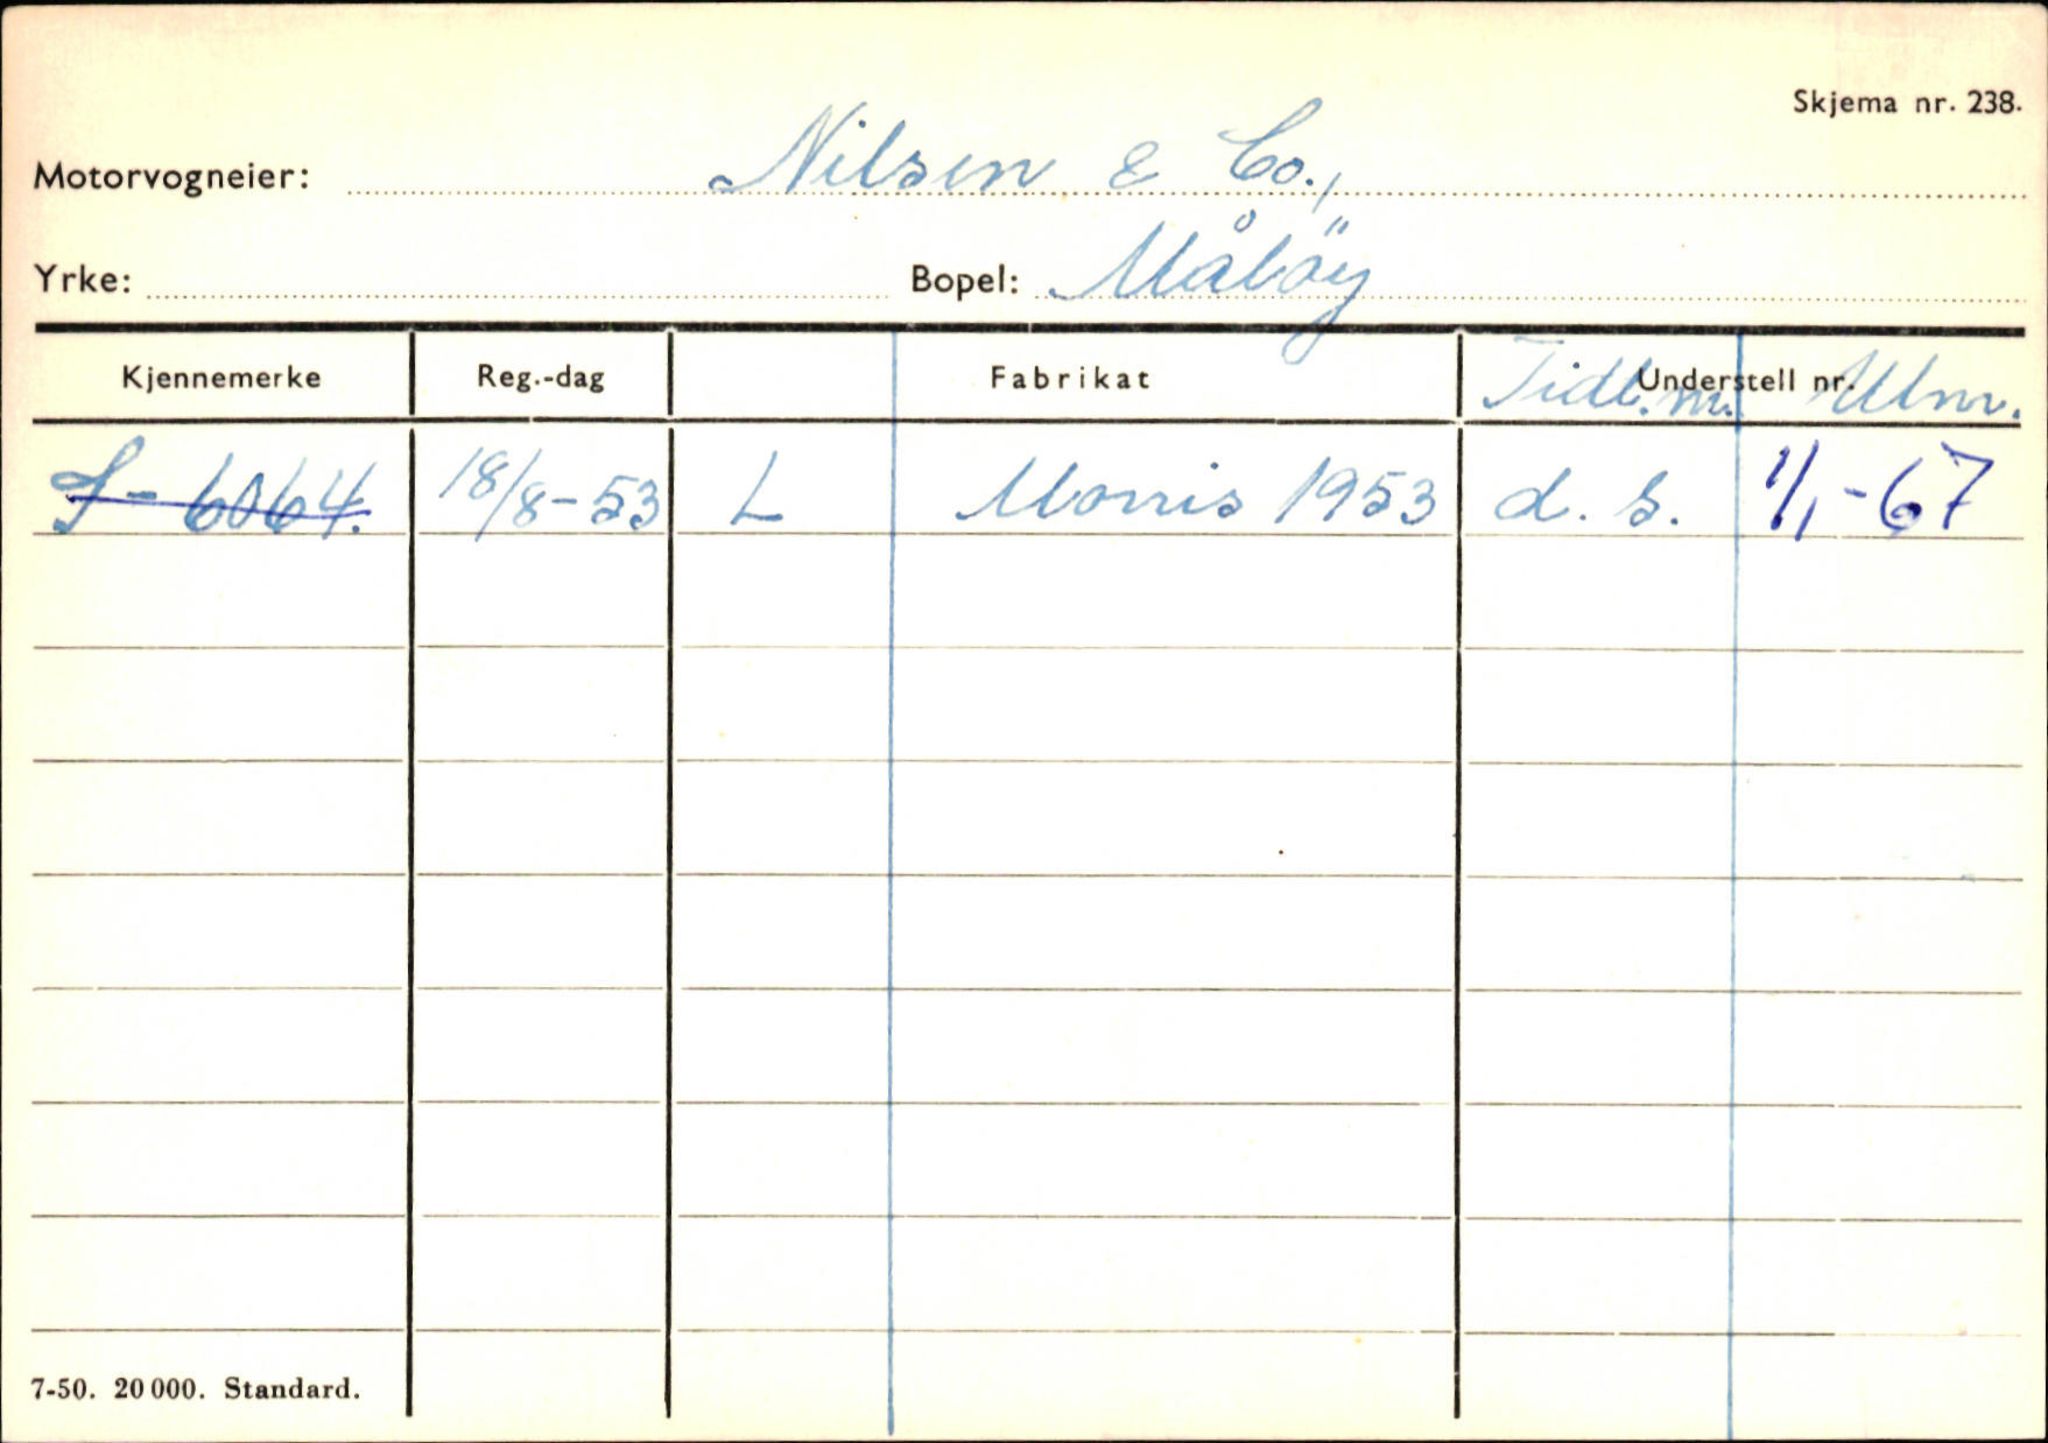 Skjema nr. 238.
Motorvogneier: Nilsen & Co.,
Yrke: Bopel: Måløy
Kjennemerke Reg.-dag Fabrikat Understell nr. Tidl. m. Utm.
S-6064. 18/8-53 L Morris 1953 d. s. 1/1-67
7-50. 20 000. Standard.